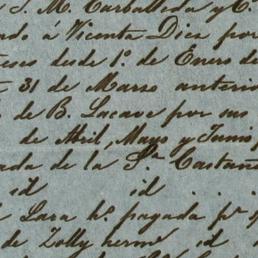 S. M. Carballeda y C.
á Vicente Dica por
eses desde 1º. de Enero de
31 de Marzo anterio
de B. Lacave por sus
de Abril, Mayo y Junio
ada de la Sra Castañ
id id . . .
Lara hº. pagada pr.
de Zolly hermº. id